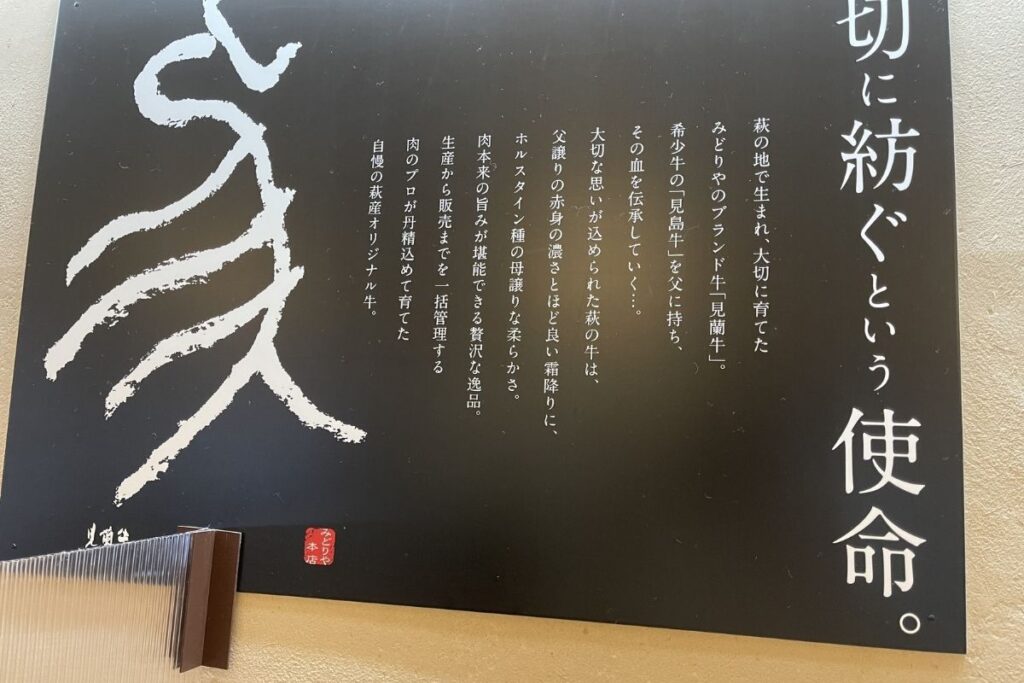 切に紡ぐという使命。
萩の地で生まれ、大切に育てた
みどりやのブランド牛「見蘭牛」。
希少牛の「見島牛」を父に持ち、
その血を伝承していく…。
大切な思いが込められた萩の牛は、
父譲りの赤身の濃さとほど良い霜降りに、
ホルスタイン種の母譲りな柔らかさ。
肉本来の旨みが堪能できる贅沢な逸品。
生産から販売までを一括管理する
肉のプロが丹精込めて育てた
自慢の萩産オリジナル牛。
みどりや
本店